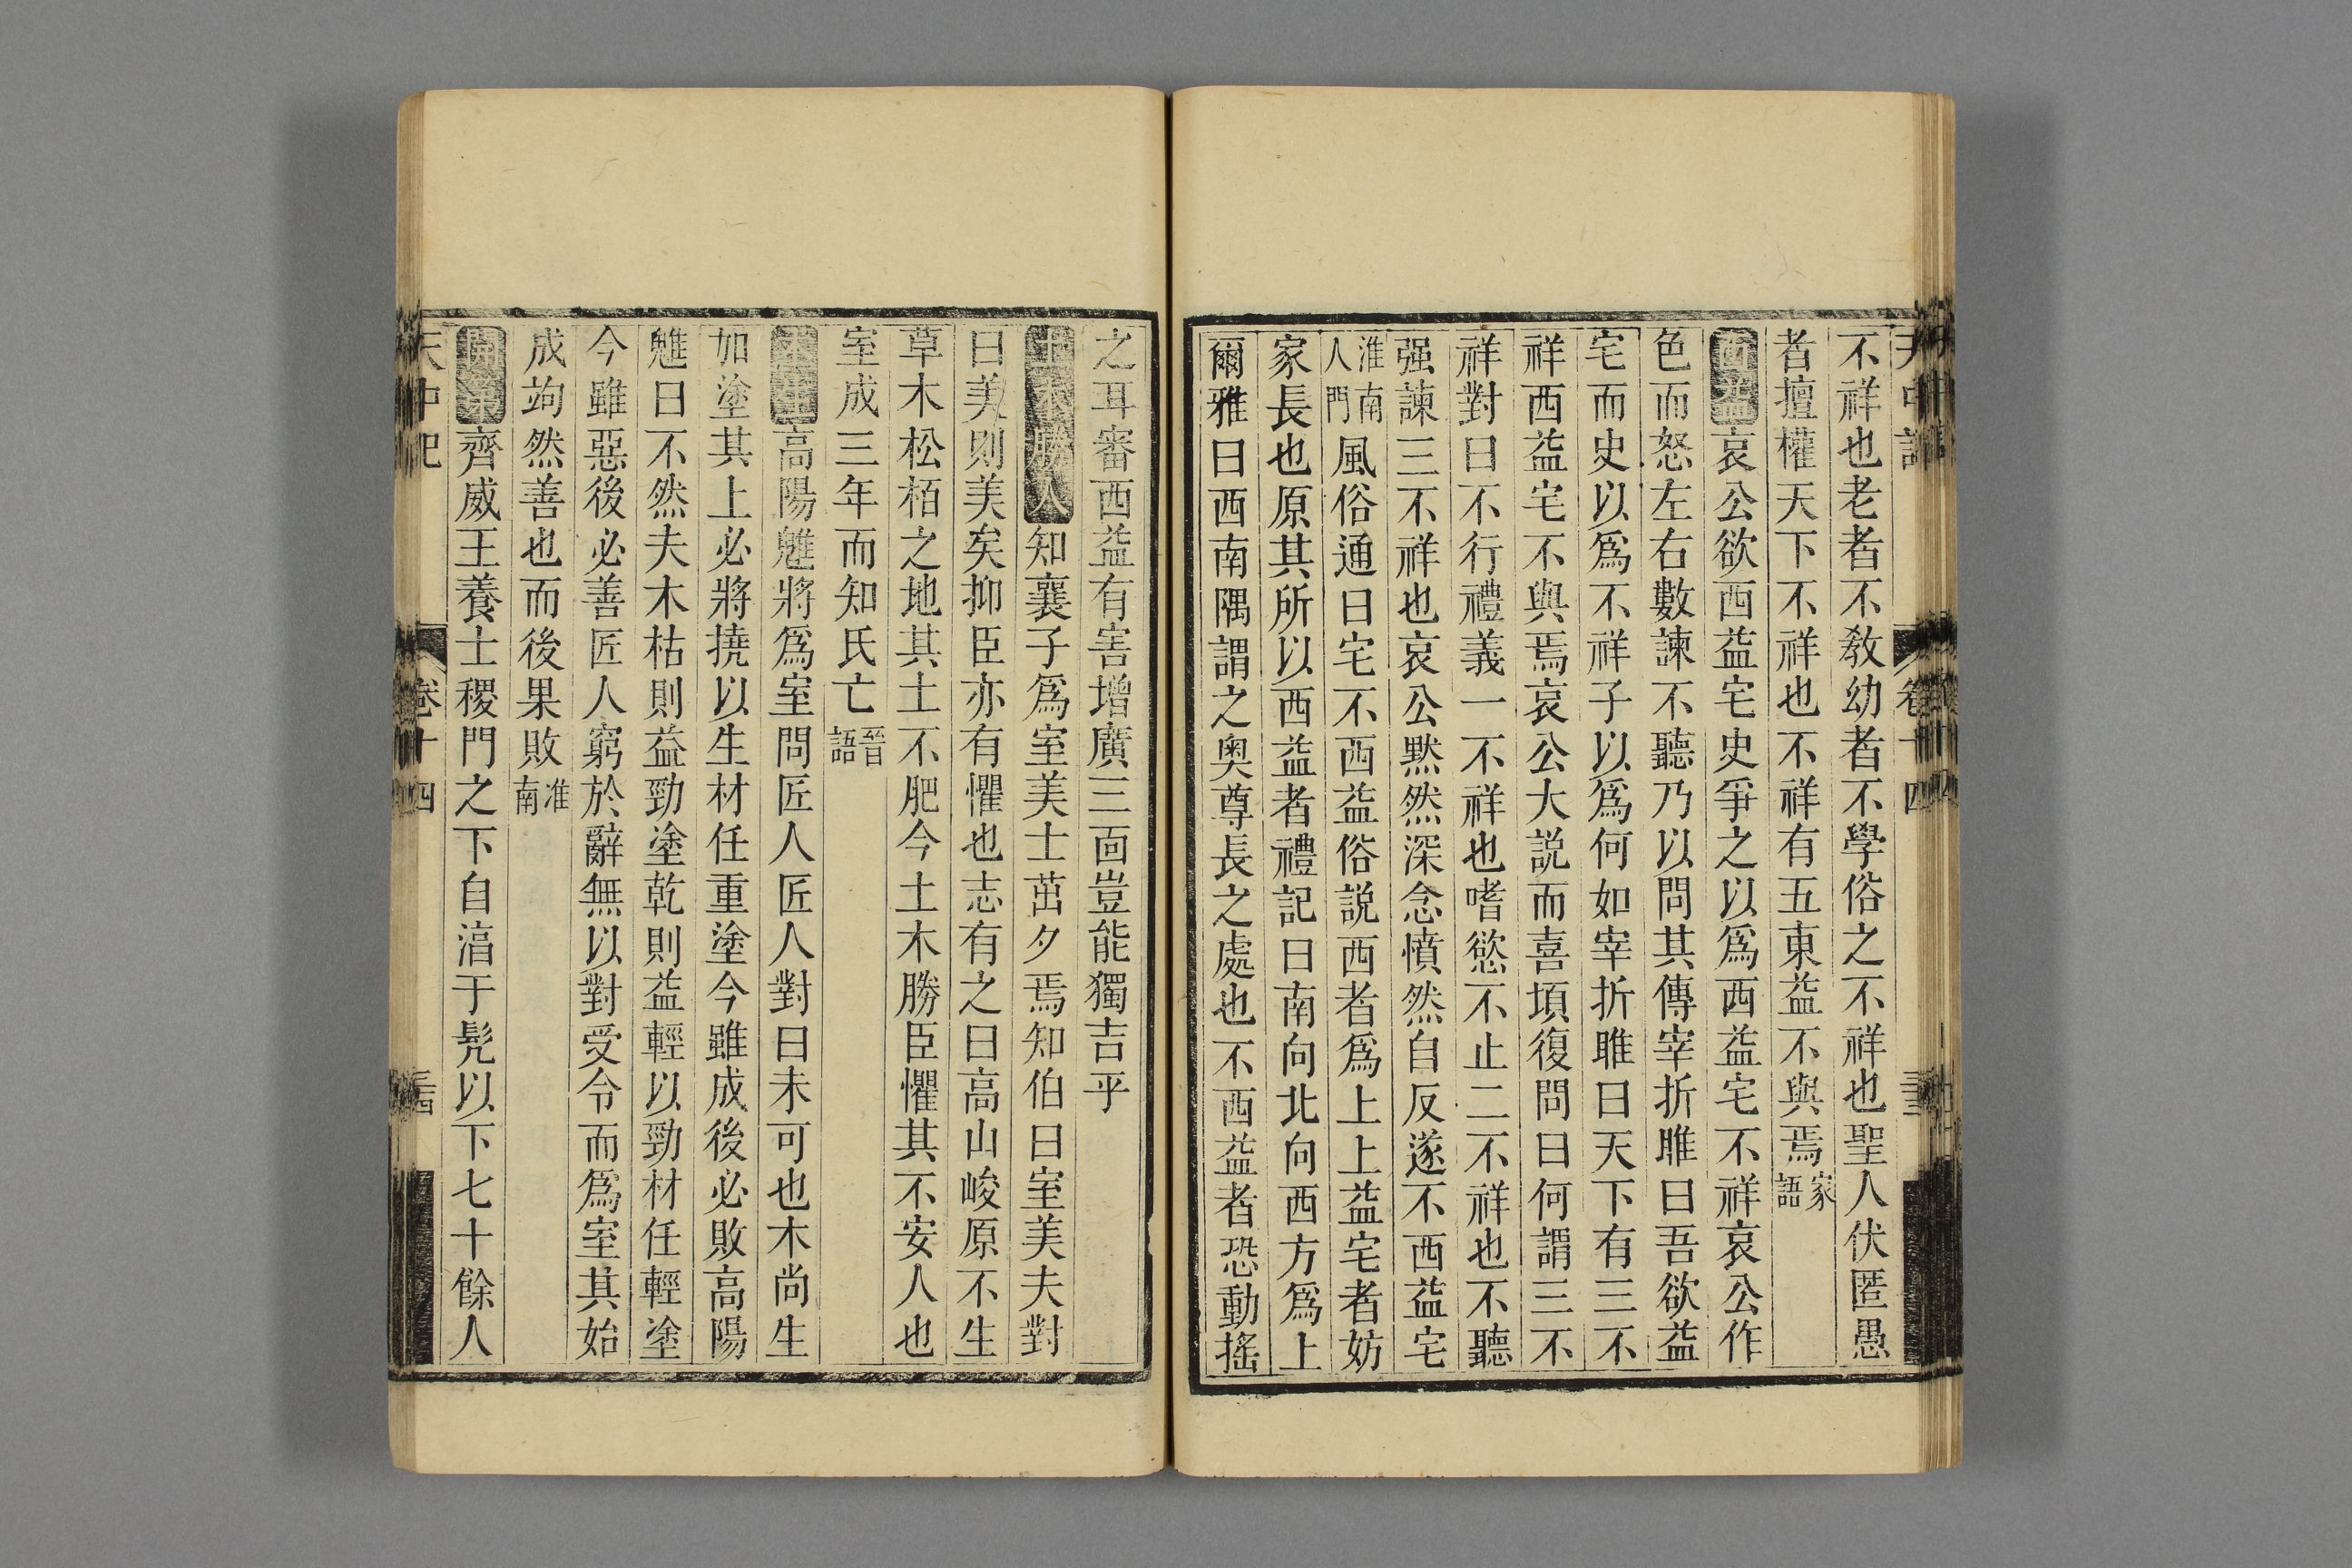 不祥也老者不教幼者不學俗之不祥也聖人伏匿愚
者擅權天下不祥也不祥有五東益不與焉家語
西益哀公欲西益宅史爭之以爲西益宅不祥哀公作
色而怒左右數諫不聽乃以問其傳宰折睢曰吾欲益
宅而史以爲不祥子以爲何如宰折睢曰天下有三不
祥西益宅不與焉哀公大説而喜頃復問曰何謂三不
祥對曰不行禮義一不祥也嗜慾不止二不祥也不聽
强諫三不祥也哀公黙然深念憤然自反遂不西益宅
淮南人門風俗通曰宅不西益俗説西者爲上上益宅者妨
家長也原其所以西益者禮記曰南向北向西方爲上
爾雅曰西南隅謂之奥尊長之處也不西益者恐動搖
之耳審西益有害增廣三面豈能獨吉乎
土木勝人知襄子爲室美士茁夕焉知伯曰室美夫對
曰美則美矣抑臣亦有懼也志有之曰高山峻原不生
草木松栢之地其土不肥今土木勝臣懼其不安人也
室成三年而知氏亡晉語
高陽魋將爲室問匠人匠人對曰未可也木尚生
加塗其上必將撓以生材任重塗今雖成後必敗高陽
魋曰不然夫木枯則益勁塗乾則益輕以勁材任輕塗
今雖惡後必善匠人窮於辭無以對受令而爲室其始
成竘然善也而後果敗淮南
齊威王養士稷門之下自湻于髠以下七十餘人
天中記 卷十四 三四